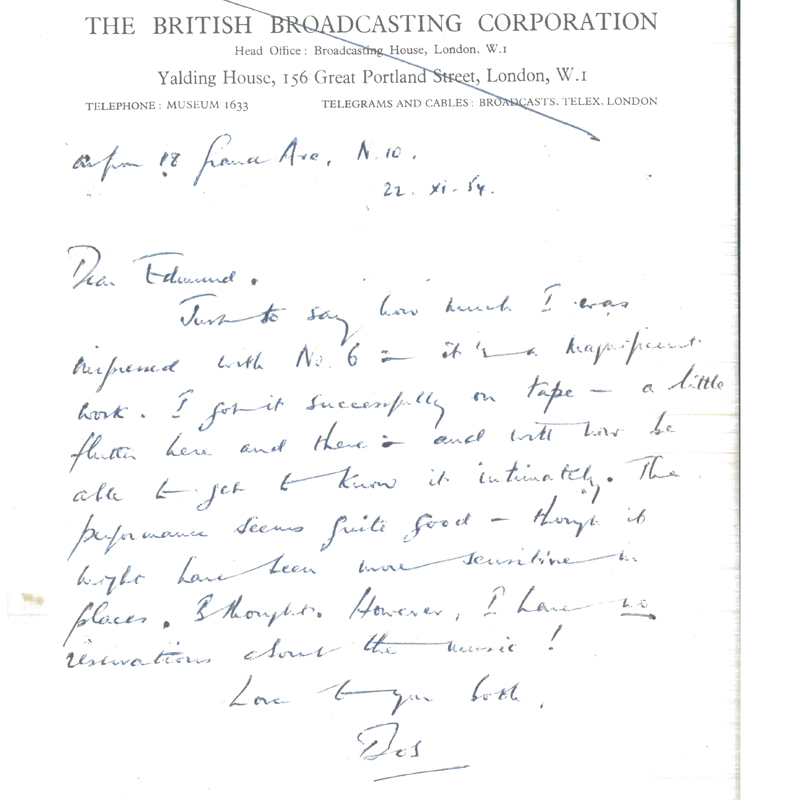 THE BRITISH BROADCASTING CORPORATION
Head Office: Broadcasting House, London, W.1
Yalding House, 156 Great Portland Street, London, W.1
TELEPHONE: MUSEUM 1633 TELEGRAMS AND CABLES: BROADCASTS, TELEX, LONDON
as from 18 Grand Ave, N.10.
22. xi. 54.
Dear Edmund.
Just to say how much I was
impressed with No. 6 – it's a magnificent
work. I got it successfully on tape – a little
flutter here and there – and will now be
able to get to know it intimately. The
performance seems quite good – though it
might have been more sensitive in
places, I thought. However, I have no
reservations about the music!
Love to you both,